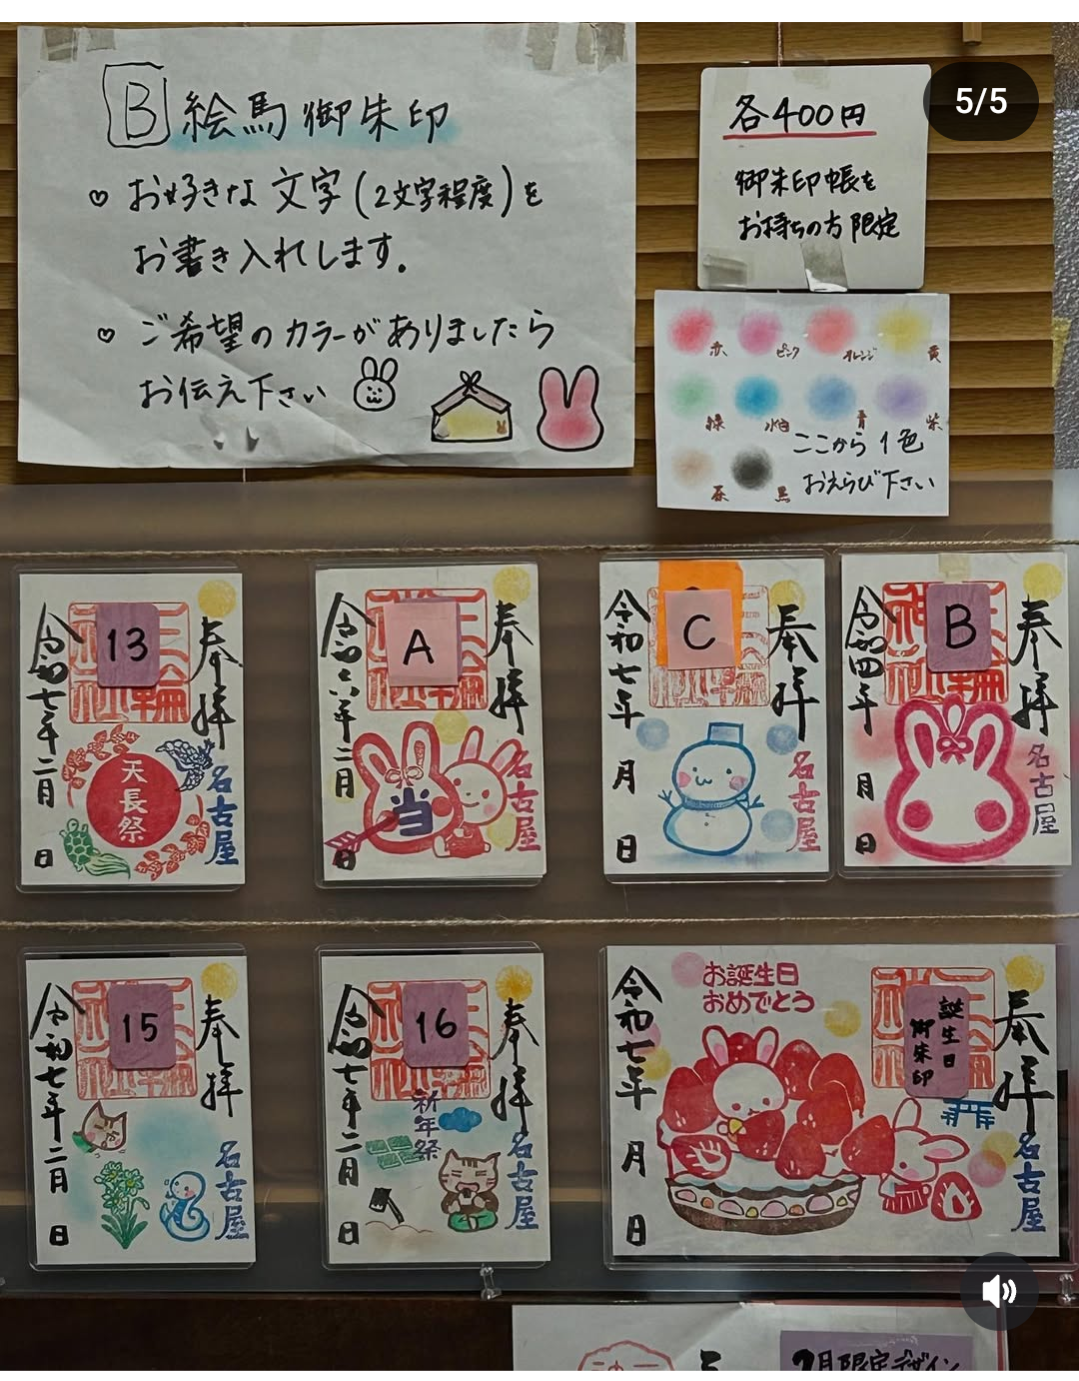 5/5
B 絵馬御朱印
♡ お好きな文字(2文字程度)を
お書き入れします。
♡ ご希望のカラーがありましたら
お伝え下さい
各400円
御朱印帳を
お持ちの方限定
赤 ピンク オレンジ 黄
緑 水色 青 紫
茶 黒
ここから1色
おえらび下さい
13
奉拝
令和七年二月 日
天長祭
名古屋
A
奉拝
令和六年二月 日
当
名古屋
C
奉拝
令和七年 月 日
名古屋
B
奉拝
令和四年 月 日
名古屋
15
奉拝
令和七年二月 日
名古屋
16
奉拝
令和七年二月 日
祈年祭
名古屋
お誕生日
おめでとう
誕生日
御朱印
奉拝
令和七年 月 日
名古屋
2月限定デザイン